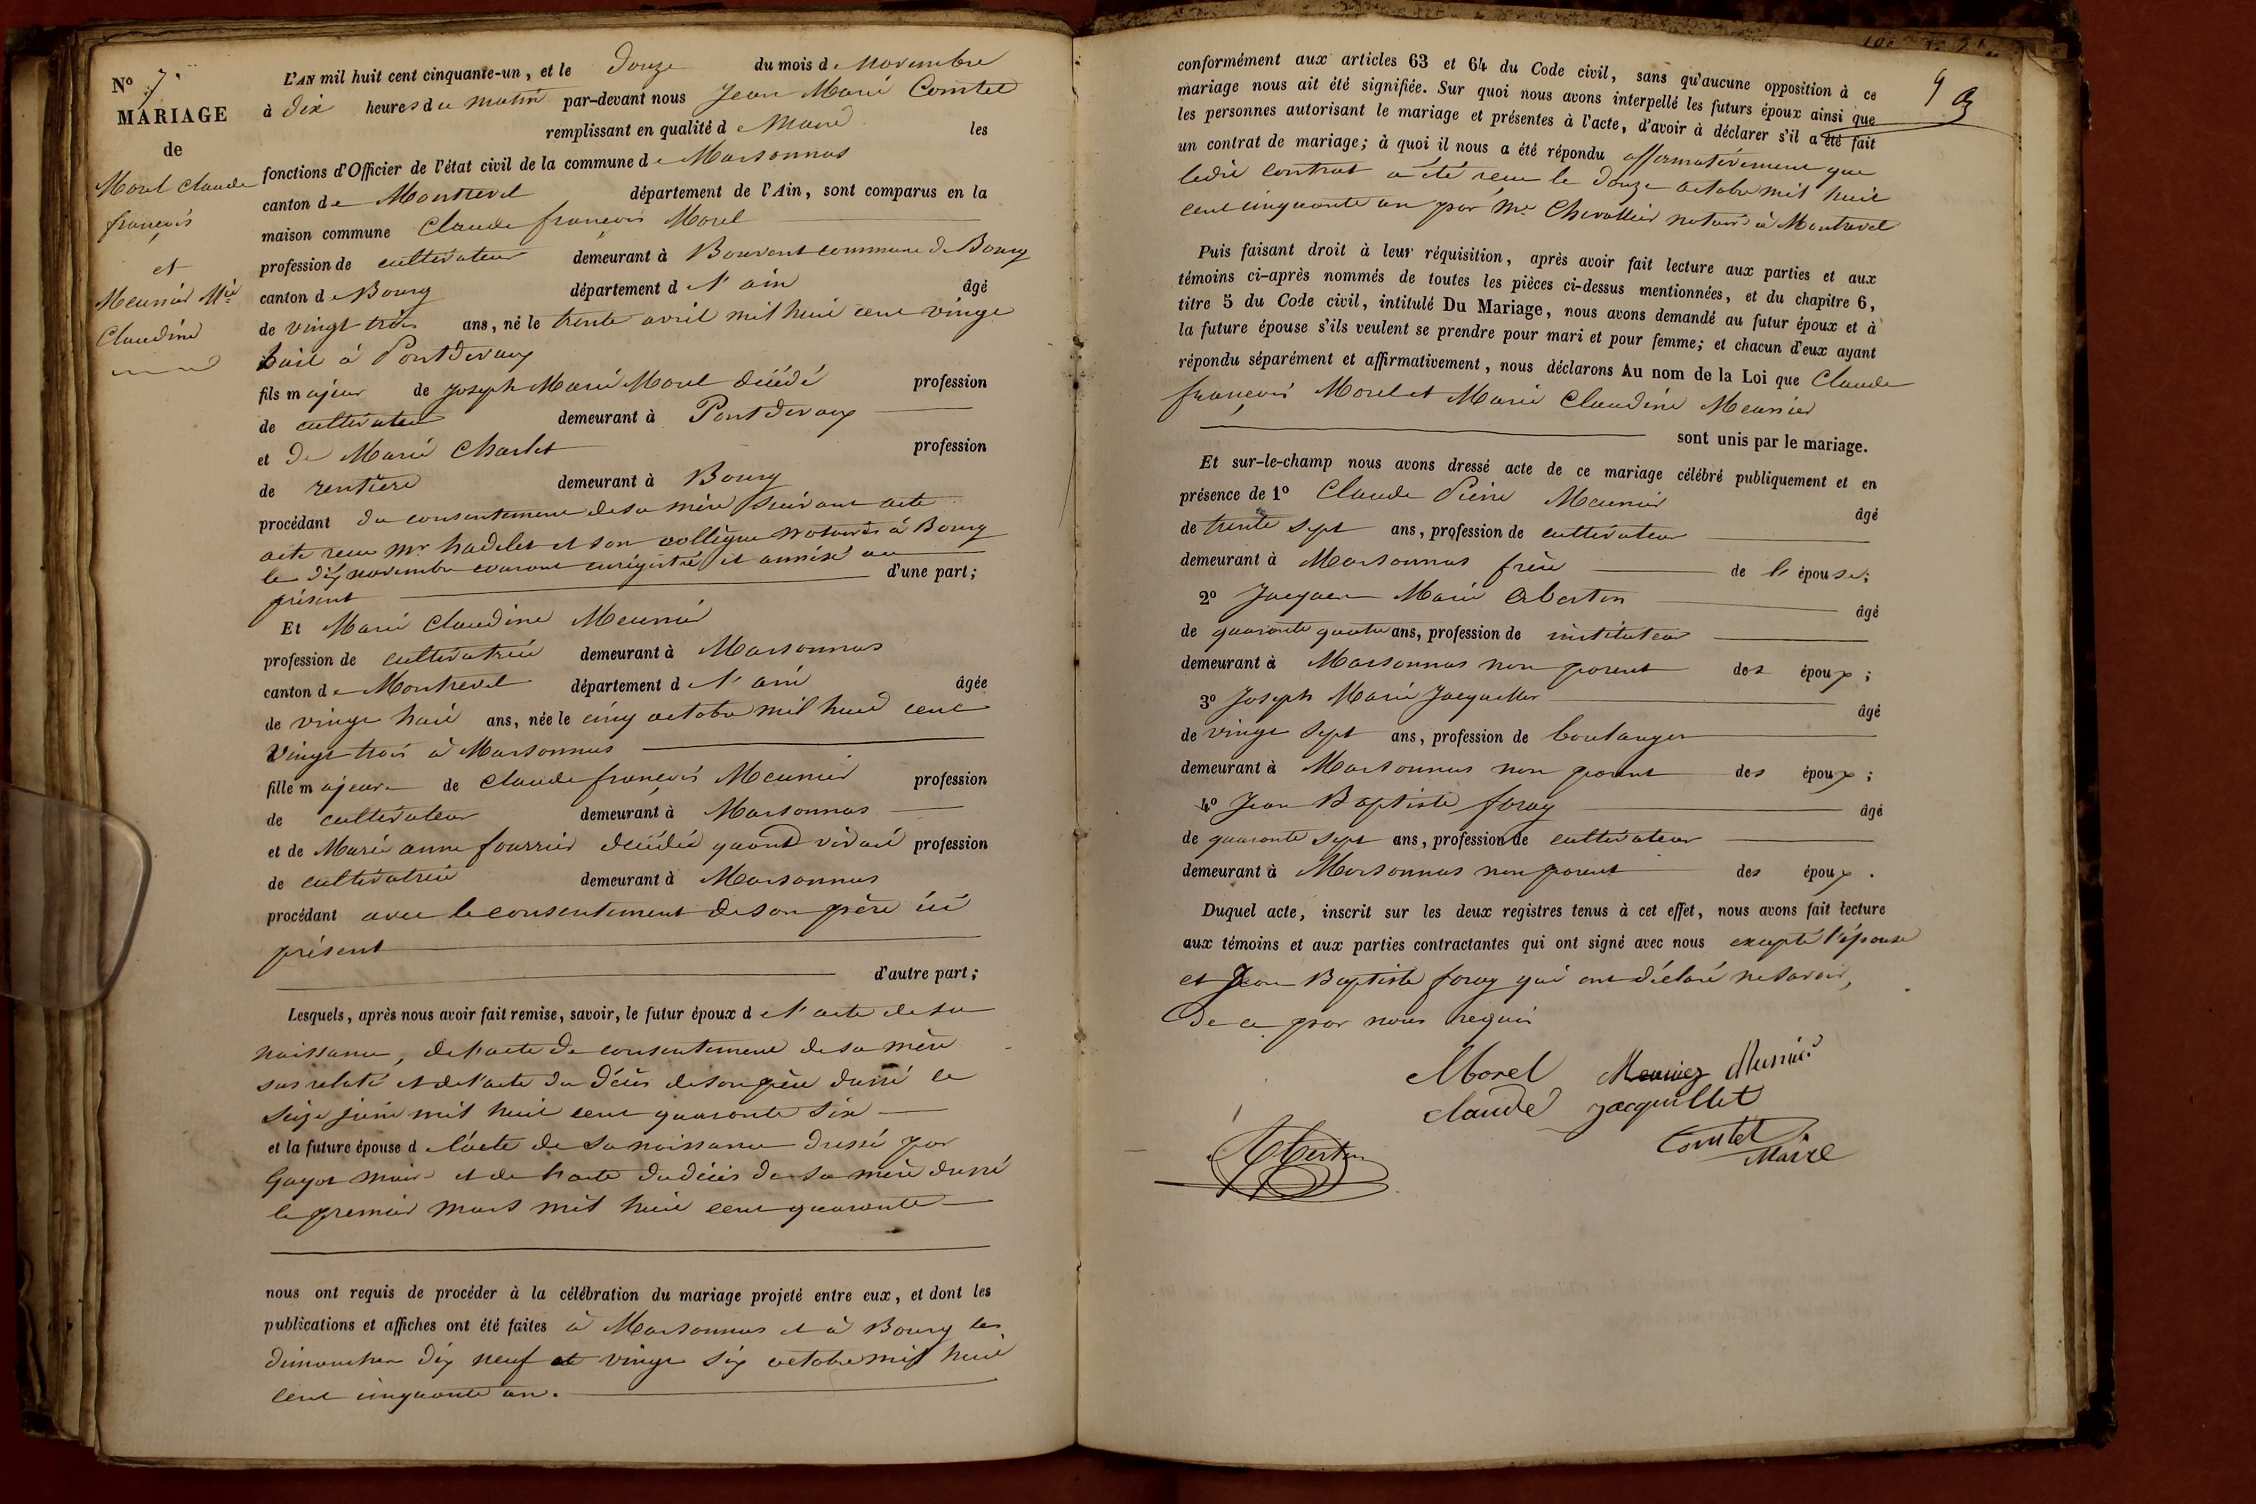 N° 7.
MARIAGE
de
Morel Claude
françois
et
Meunier Mie
Claudine
L'AN mil huit cent cinquante-un, et le douze du mois de Novembre
à dix heures du matin par-devant nous Jean Marie Comtet
remplissant en qualité de Maire les
fonctions d'Officier de l'état civil de la commune de Marsonnas
canton de Montrevel département de l'Ain, sont comparus en la
maison commune Claude françois Morel
profession de cultivateur demeurant à Bouvent commune de Bourg
canton de Bourg département de l'ain âgé
de vingt trois ans, né le trente avril mil huit cent vingt
huit à Pontdevaux
fils majeur de Joseph Marie Morel décédé profession
de cultivateur demeurant à Pontdevaux
et de Marie Charlet profession
de rentière demeurant à Bourg
procédant du consentement de sa mère suivant acte
acte reçu Mr et son collègue notaires à Bourg
le dix novembre courant enrégistré et annéxé au
présent d'une part;
Et Marie Claudine Meunier
profession de cultivatrice demeurant à Marsonnas
canton de Montrevel département de l'ain âgée
de vingt huit ans, née le cinq octobre mil huit cent
Vingt trois à Marsonnas
fille majeure de Claude françois Meunier profession
de cultivateur demeurant à Marsonnas
et de Marie anne fourrier décédée quand vivait profession
de cultivatrice demeurant à Marsonnas
procédant avec le consentement de son père ici
présent
d'autre part;
Lesquels, après nous avoir fait remise, savoir, le futur époux de l'acte de sa
naissance, de l'acte de consentement de sa mère
sus relaté et de l'acte du décès de son père dressé le
seize juin mil huit cent quarante six
et la future épouse de l'acte de sa naissance dressé par
Gayot maire et de l'acte du décès de sa mère dressé
le premier mars mil huit cent quarante
nous ont requis de procéder à la célébration du mariage projeté entre eux, et dont les
publications et affiches ont été faites à Marsonnas et à Bourg les
dimanches dix neuf et vingt six octobre mil huit
cent cinquante un.
conformément aux articles 63 et 64 du Code civil, sans qu'aucune opposition à ce
mariage nous ait été signifiée. Sur quoi nous avons interpellé les futurs époux ainsi que
les personnes autorisant le mariage et présentes à l'acte, d'avoir à déclarer s'il a été fait
un contrat de mariage; à quoi il nous a été répondu affirmativement que
ledit contrat a été reçu le douze octobre mil huit
cent cinquante un par Me Chevallier notaire à Montrevel
Puis faisant droit à leur réquisition, après avoir fait lecture aux parties et aux
témoins ci-après nommés de toutes les pièces ci-dessus mentionnées, et du chapitre 6,
titre 5 du Code civil, intitulé Du Mariage, nous avons demandé au futur époux et à
la future épouse s'ils veulent se prendre pour mari et pour femme; et chacun d'eux ayant
répondu séparément et affirmativement, nous déclarons Au nom de la Loi que Claude
françois Morel et Marie Claudine Meunier
sont unis par le mariage.
Et sur-le-champ nous avons dressé acte de ce mariage célébré publiquement et en
présence de 1° Claude Pierre Meunier âgé
de trente sept ans, profession de cultivateur
demeurant à Marsonnas frère de l'épouse;
2° Jacques Marie Abertin âgé
de quarante quatre ans, profession de instituteur
demeurant à Marsonnas non parent des époux;
3° Joseph Marie Jacquillet âgé
de vingt sept ans, profession de boulanger
demeurant à Marsonnas non parent des époux;
4° Jean Baptiste foray âgé
de quarante sept ans, profession de cultivateur
demeurant à Marsonnas non parent des époux.
Duquel acte, inscrit sur les deux registres tenus à cet effet, nous avons fait lecture
aux témoins et aux parties contractantes qui ont signé avec nous excepté l'épouse
et Jean Baptiste foray qui ont déclaré ne savoir,
de ce par nous requis
Morel Meuniez Munier
claude Jacquillet
Abertin
Comtet
Maire